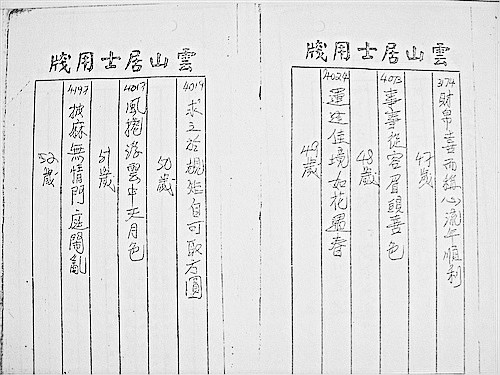 雲山居士用牋
3174 財帛喜而稱心流年順利
47歲
4073 事事從容眉頭喜色
48歲
4024 還逢佳境如花遇春
49歲
雲山居士用牋
4019 求之於規矩自可取方圓
50歲
4017 風捲浮雲中天月色
51歲
4197 披麻無情門庭鬧亂
52歲